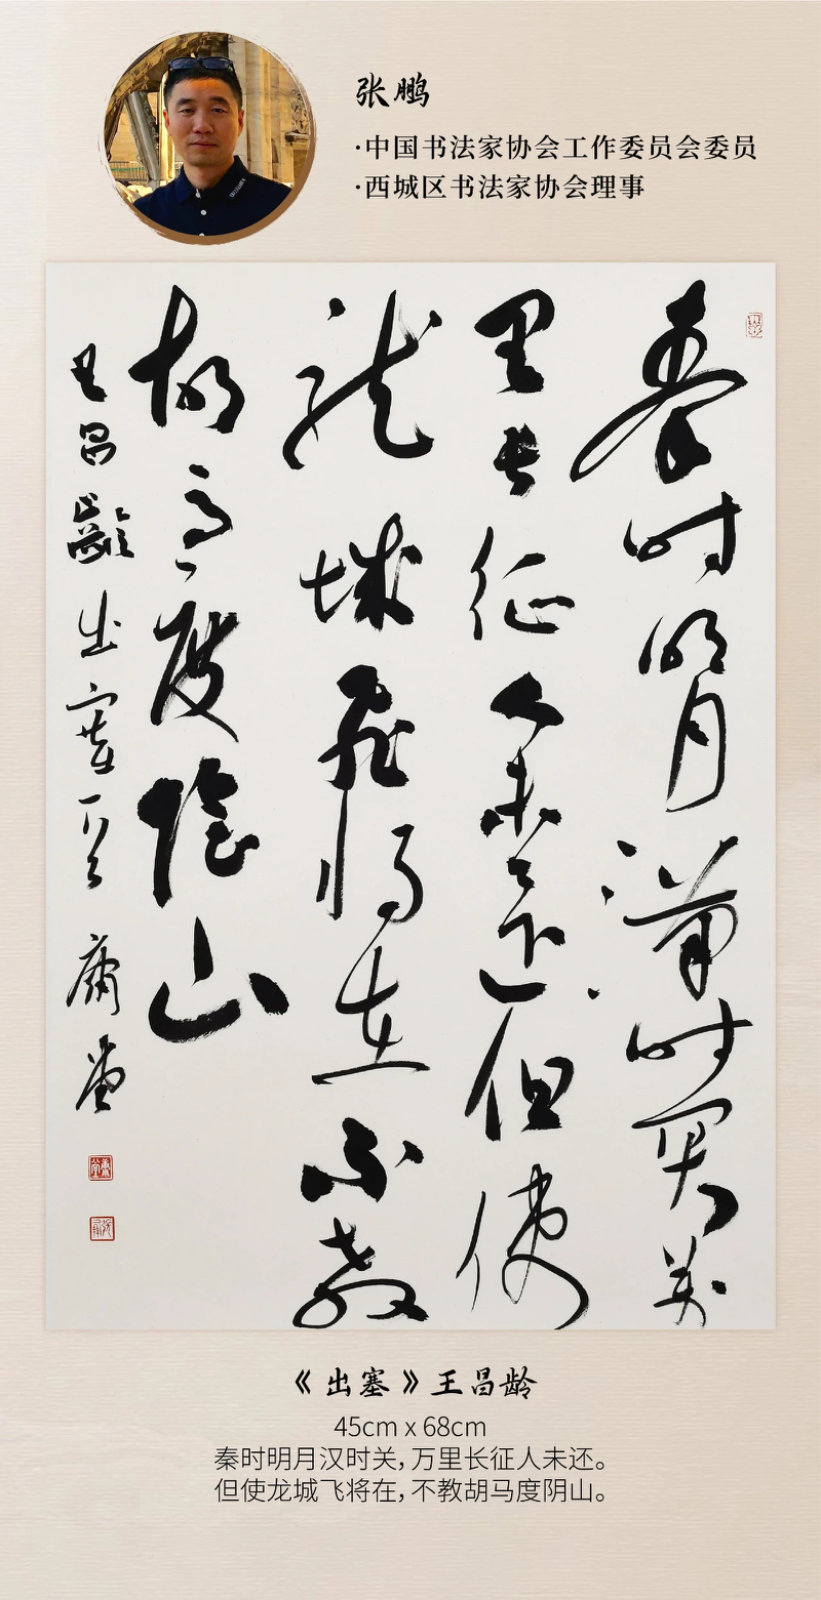 张鹏
·中国书法家协会工作委员会委员
·西城区书法家协会理事
秦時明月漢時關萬
里長征人未還但使
龍城飛將在不教
胡馬度陰山
王昌齡出塞一首 庸堂
《出塞》王昌龄
45cm x 68cm
秦时明月汉时关，万里长征人未还。
但使龙城飞将在，不教胡马度阴山。